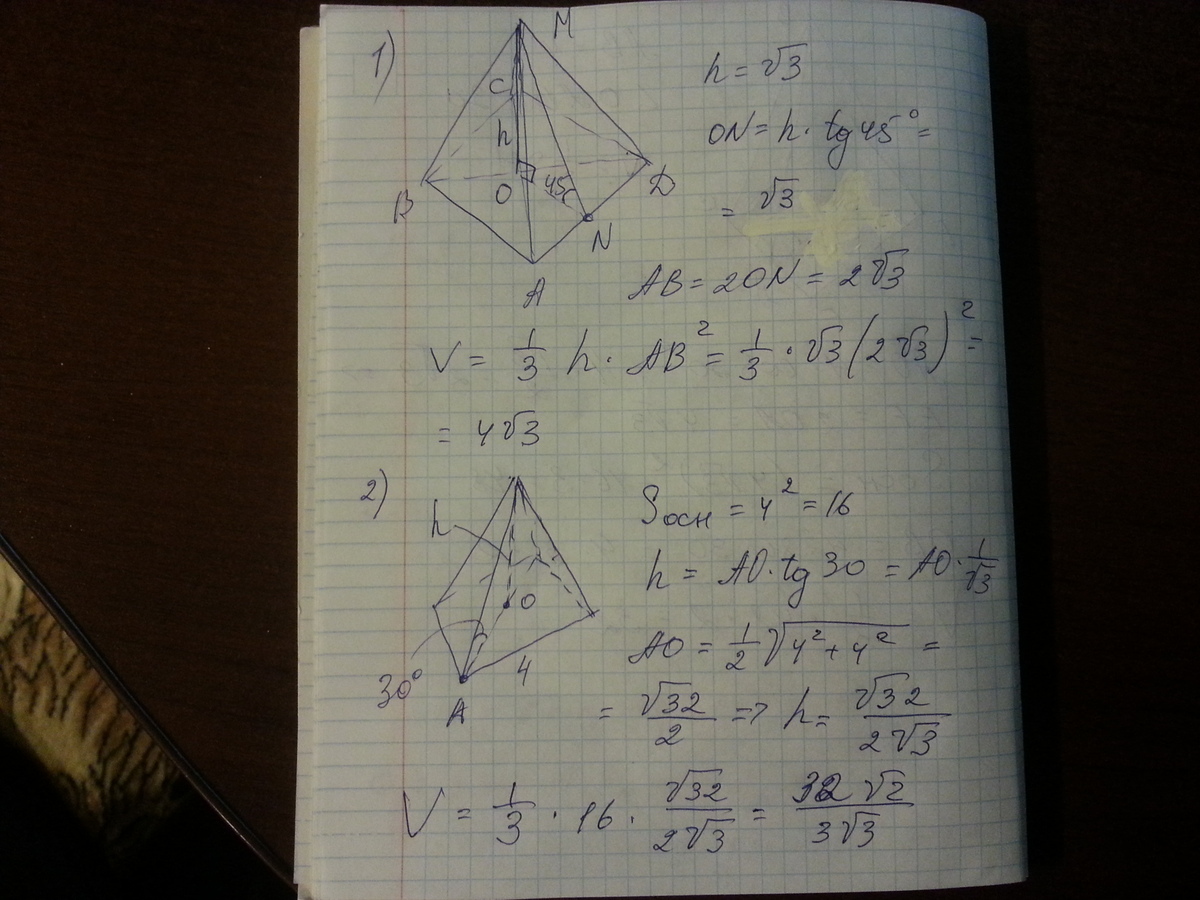 1)
M
C
h
O
45
B
D
N
A
h = √3
ON = h · tg 45° =
= √3
AB = 2ON = 2√3
V = 1/3 h · AB² = 1/3 · √3 (2√3)² =
= 4√3
2)
h
O
30°
4
A
Sосн = 4² = 16
h = AO · tg 30 = AO · 1/√3
AO = 1/2 √(4² + 4²) =
= √32/2 => h = √32/(2√3)
V = 1/3 · 16 · √32/(2√3) = 32√2/(3√3)